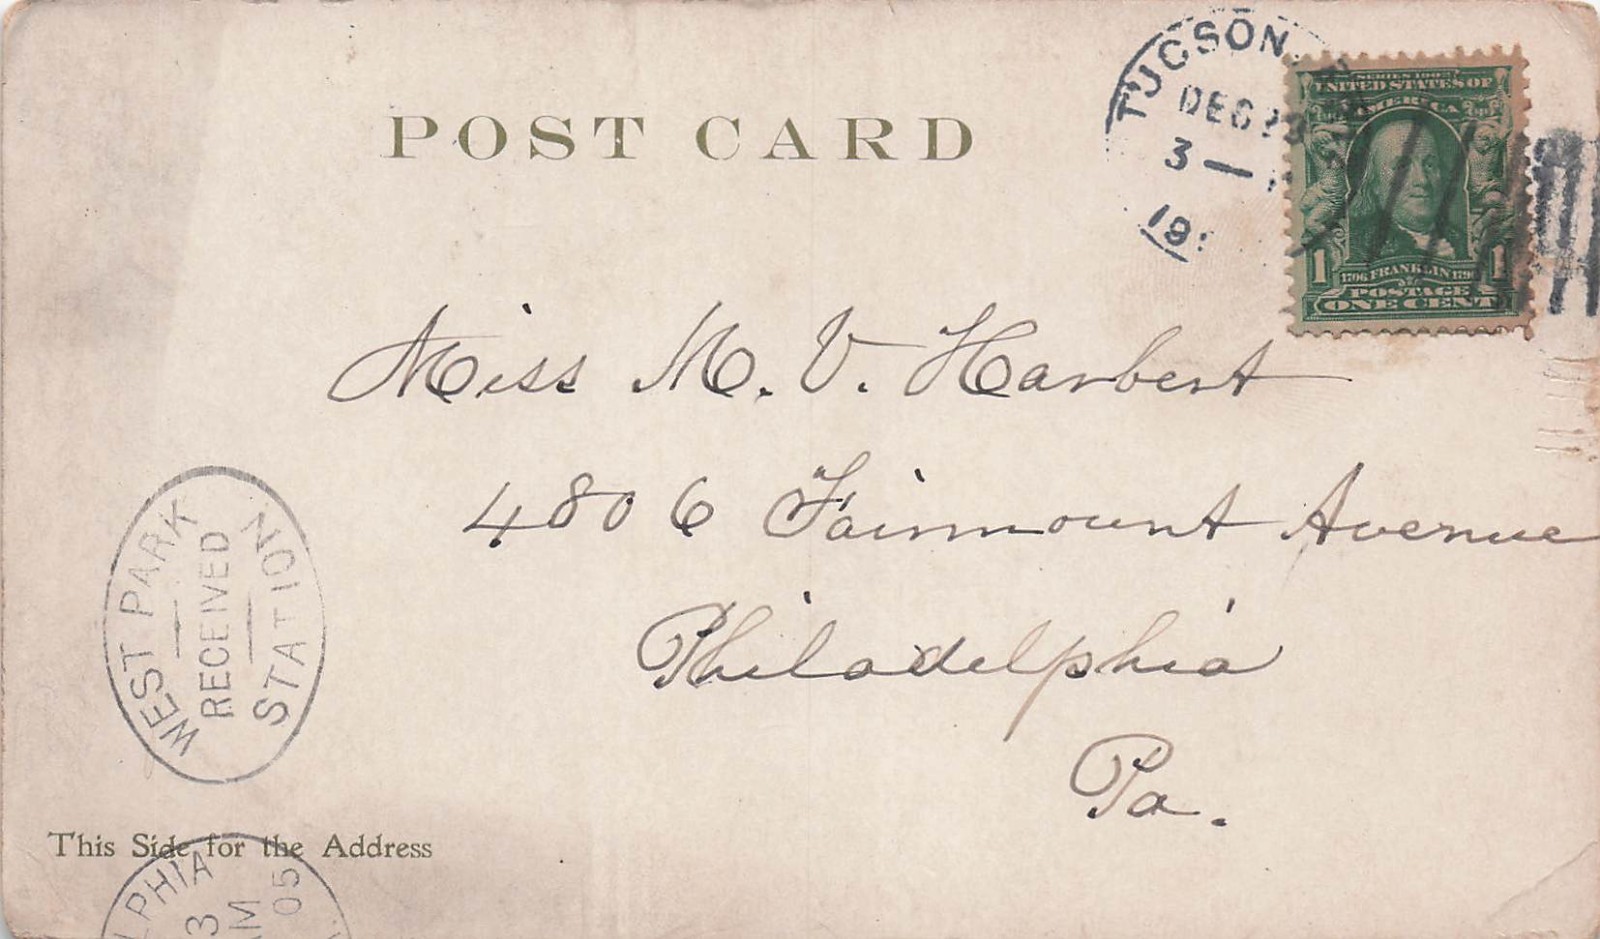 POST CARD
TUCSON
DEC 23
3 —
19
SERIES 1902
UNITED STATES OF
AMERICA
1 1706 FRANKLIN 1790 1
POSTAGE
ONE CENT
Miss M. V. Harbert
4806 Fairmount Avenue
Philadelphia
Pa.
WEST PARK
RECEIVED
STATION
This Side for the Address
LPHIA
3
AM
05